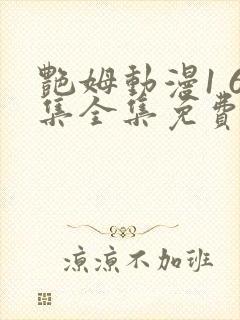 艷姆動漫1 6
集全集免費
涼涼不加班